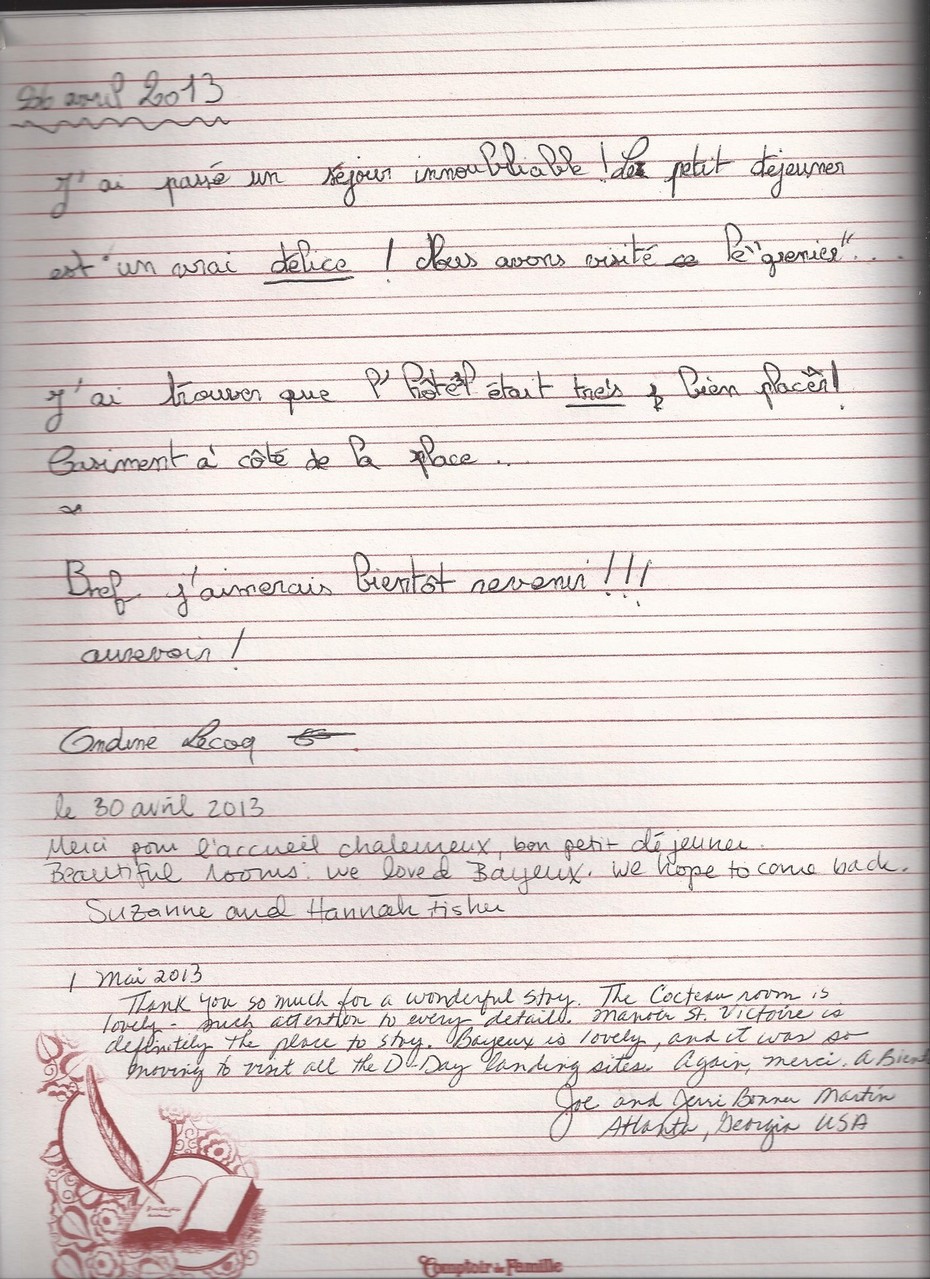 26 avril 2013
J'ai passé un séjour innoubliable ! Le petit déjeuner
est un vrai délice ! Nous avons visité le "grenier"...
J'ai trouver que l'hôtel était très bien placer!
Cariment à côté de la place...
Bref j'aimerais bientôt revenir !!!
aurevoir !
Ondine Lecoq
le 30 avril 2013
Merci pour l'accueil chaleureux, bon petit déjeuner.
Beautiful rooms. We loved Bayeux. We hope to come back.
Suzanne and Hannah Fisher
1 Mai 2013
Thank you so much for a wonderful stay. The Cocteau room is
lovely - such attention to every detail. Manoir St. Victoire is
definitely the place to stay. Bayeux is lovely, and it was so
moving to visit all the D-Day landing sites. Again, merci. A Bien
Joe and Jerri Bonner Martin
Atlanta, Georgia USA
Comptoir de Famille